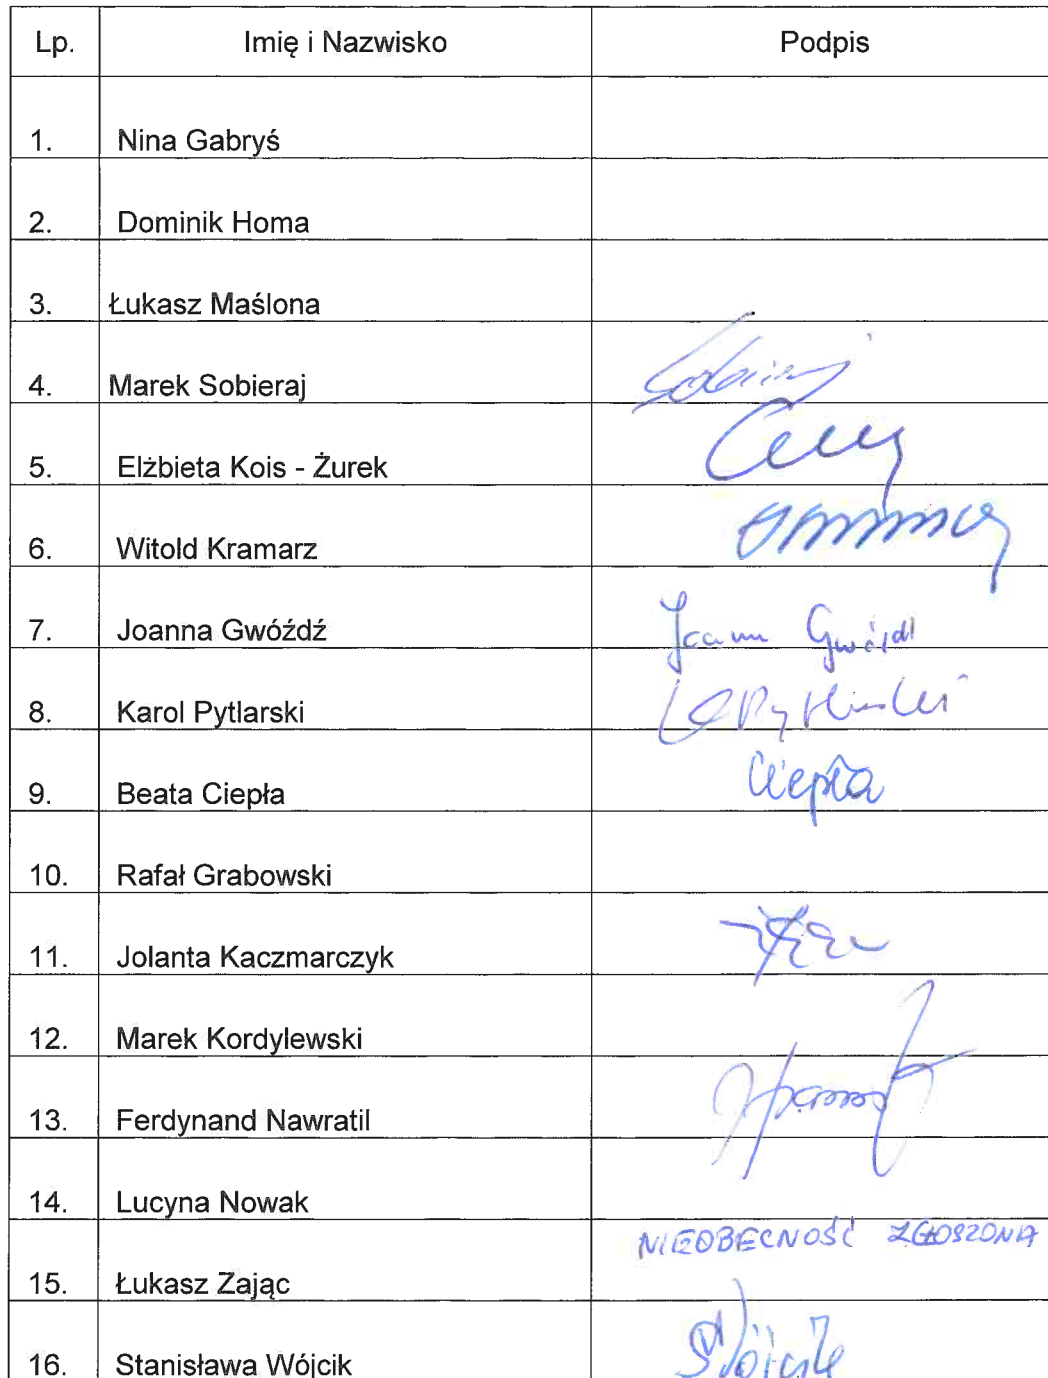 Lp. Imię i Nazwisko Podpis
1. Nina Gabryś
2. Dominik Homa
3. Łukasz Maślona
4. Marek Sobieraj Sobieraj
5. Elżbieta Kois - Żurek
6. Witold Kramarz
7. Joanna Gwóźdź Joanna Gwóźdź
8. Karol Pytlarski Pytlarski
9. Beata Ciepła Ciepła
10. Rafał Grabowski
11. Jolanta Kaczmarczyk
12. Marek Kordylewski
13. Ferdynand Nawratil
14. Lucyna Nowak
15. Łukasz Zając NIEOBECNOŚĆ ZGŁOSZONA
16. Stanisława Wójcik SWójcik